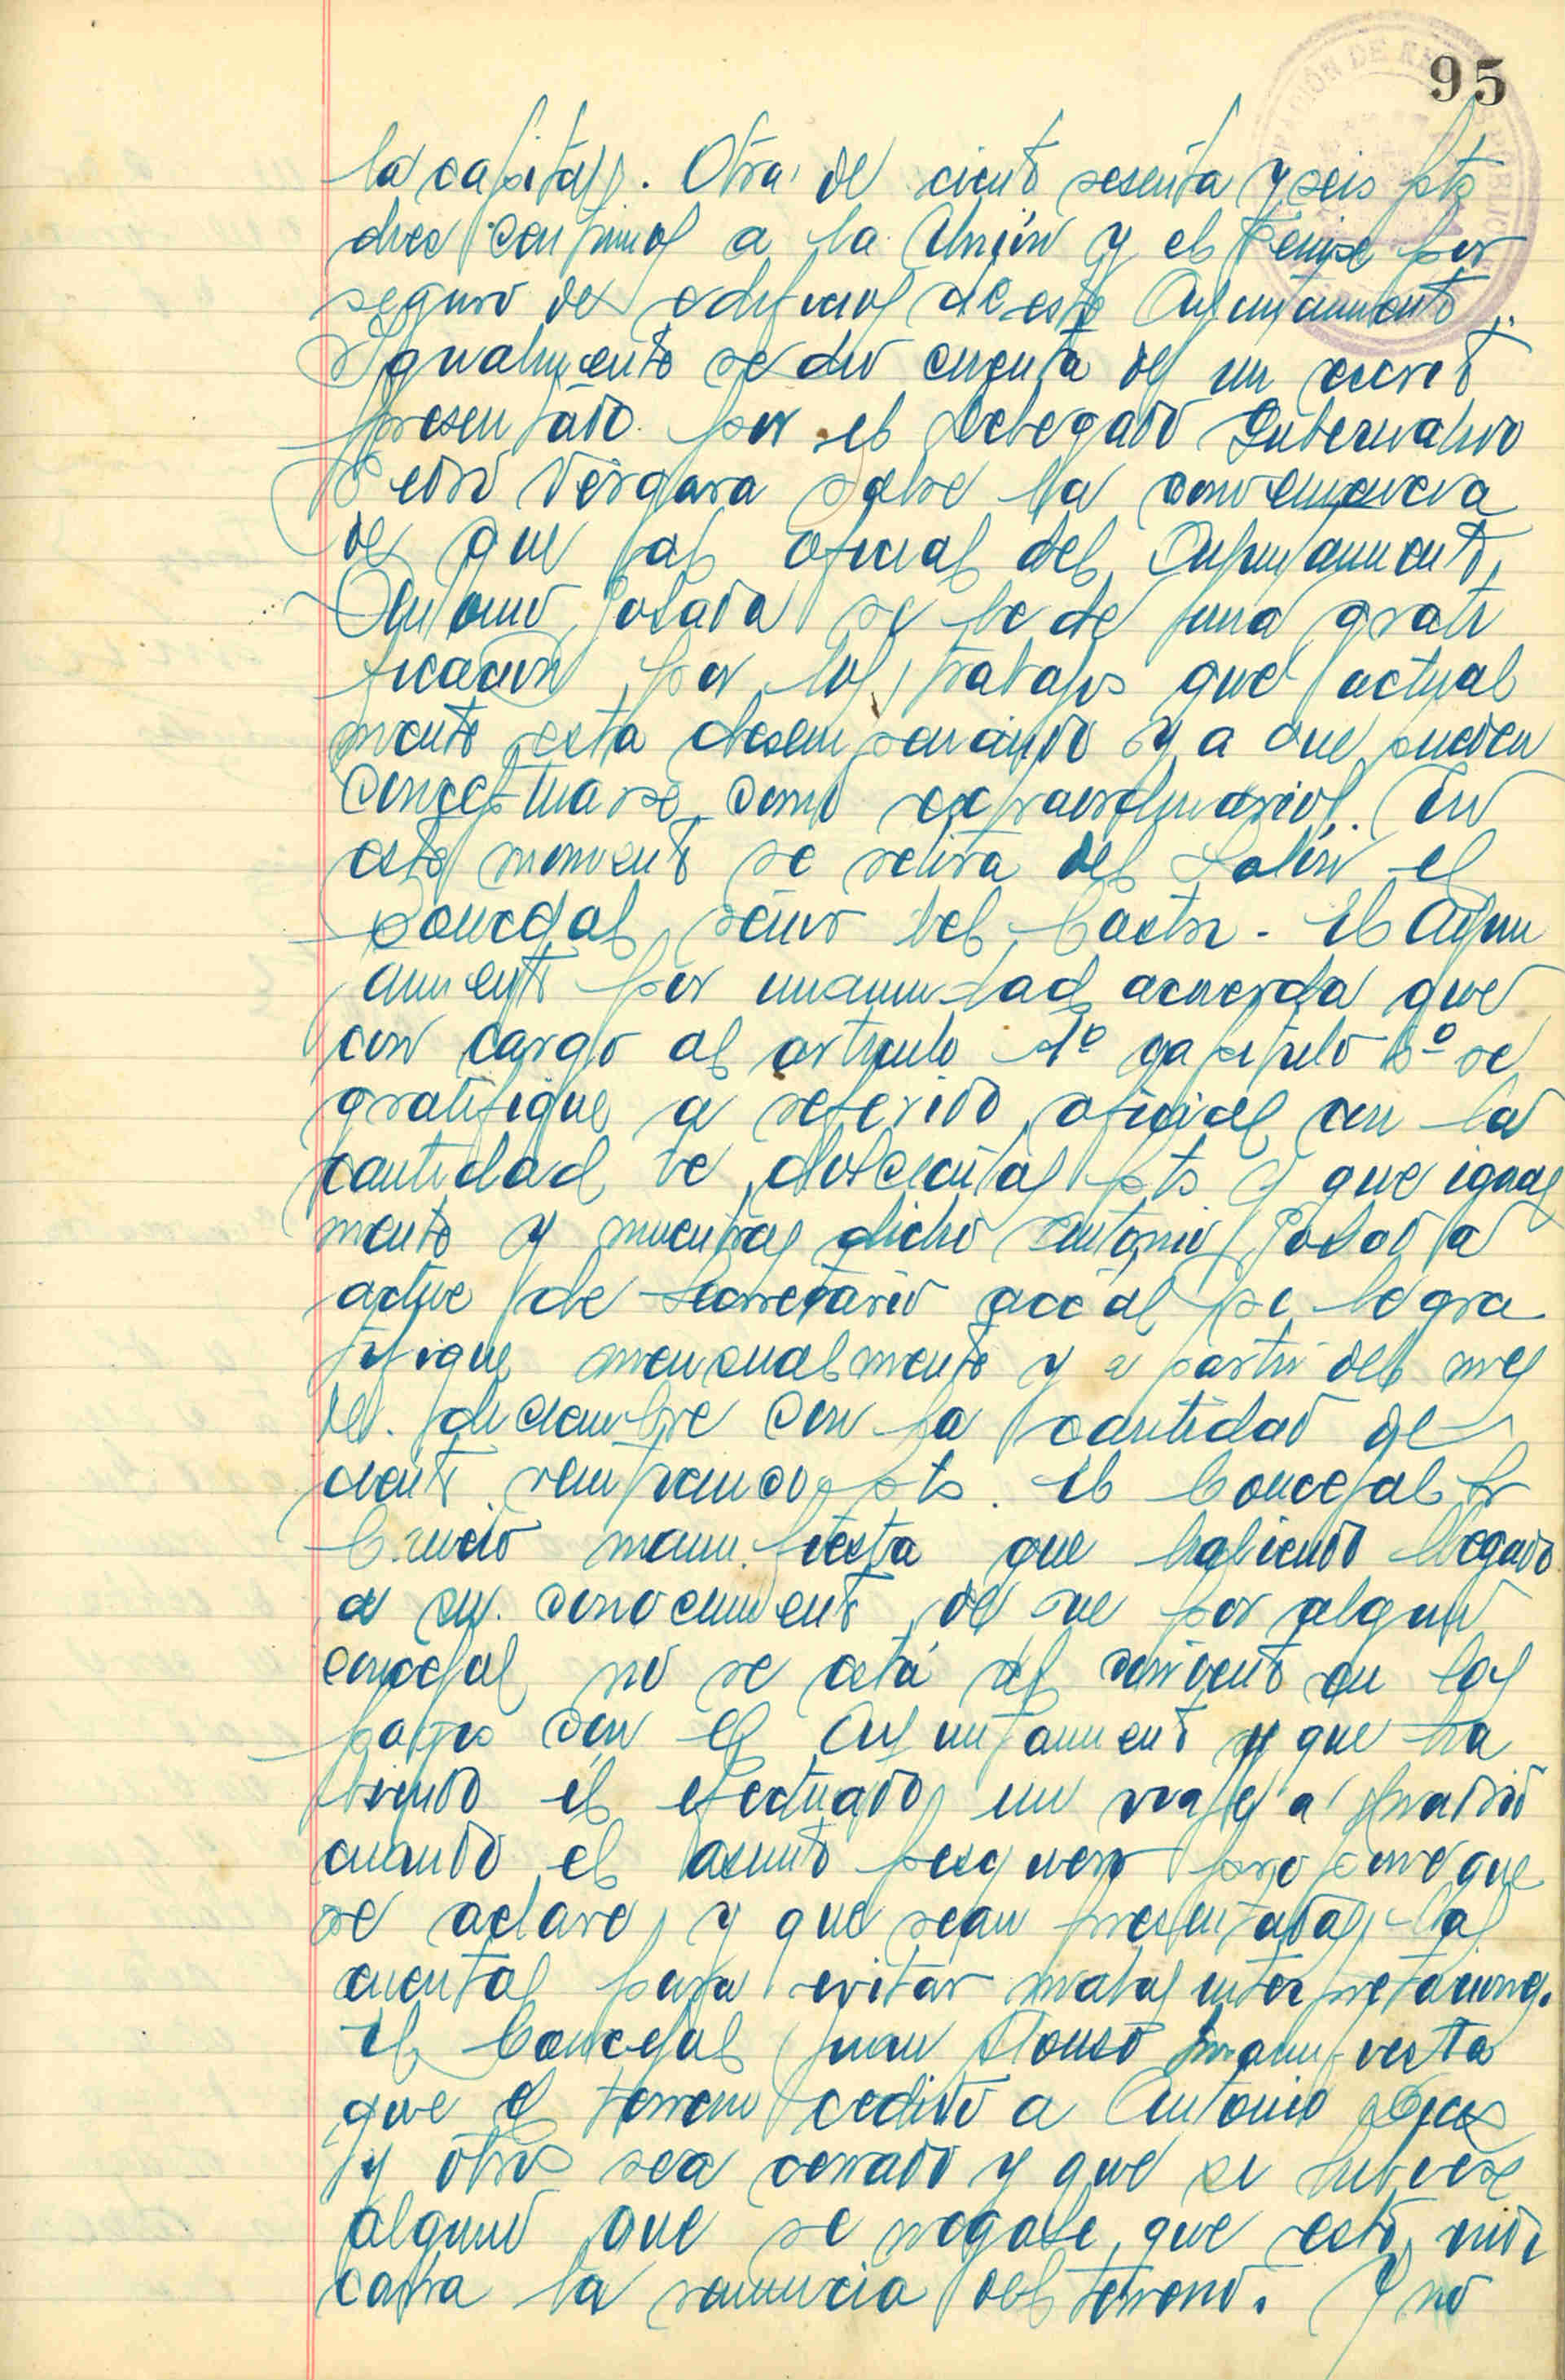 95
la capital. Otra de ciento sesenta y seis pts
diez centimos a la Unión y el Fenix por
seguro de edificios de este Ayuntamiento.
Igualmente se dio cuenta de un escrito
presentado por el Delegado Gubernativo
Pedro Vergara sobre la conveniencia
de que al oficial del Ayuntamiento,
Antonio Posada se le de una grati
ficacion por los trabajos que actual
mente esta desempeñando y a que pueden
conceptuarse como extraordinarios. En
este momento se retira del Salón el
Concejal señor del Castor. El Ayun
amiento por unanimidad acuerda que
con cargo al articulo 1º capitulo 6º se
gratifique a referido oficial con la
cantidad de doscientas pts y que igual
mente y mientras dicho Antonio Posada
actue de Secretario accal se le gra
tifique mensualmente y a partir del mes
de diciembre con la cantidad de
ciento veinticinco pts. El Concejal Sr
manifiesta que habiendo llegado
a su conocimiento de que por algun
concejal no se está al corriente en los
pagos con el Ayuntamiento y que ha
biendo el efectuado un viaje a Madrid
cuando el asunto pesquero propone que
se aclare y que sean presentadas las
cuentas para evitar malas interpretaciones.
El Concejal Juan Alonso manifiesta
que el terreno cedido a Antonio
y otros sea cerrado y que si hubiese
alguno que se negase, que esto indi
cara la renuncia del terreno. Y no